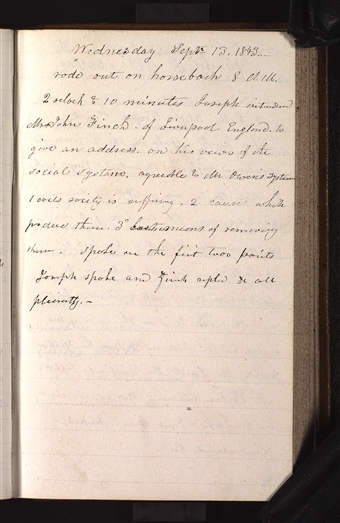 Wednesday Sept. 13. 1843.—
rode out on horseback 8 A M.
2 oclock & 10 minutes Joseph introduced
Mr John Finch. of Liverpool England. to
give an address. on his views of the
social system. agreeable to Mr Owens System
1 evils society is suffering. 2 cause which
produce them. 3d means of removing
them. spoke on the first two points
Joseph spoke and Finch replid &
pleinty.—